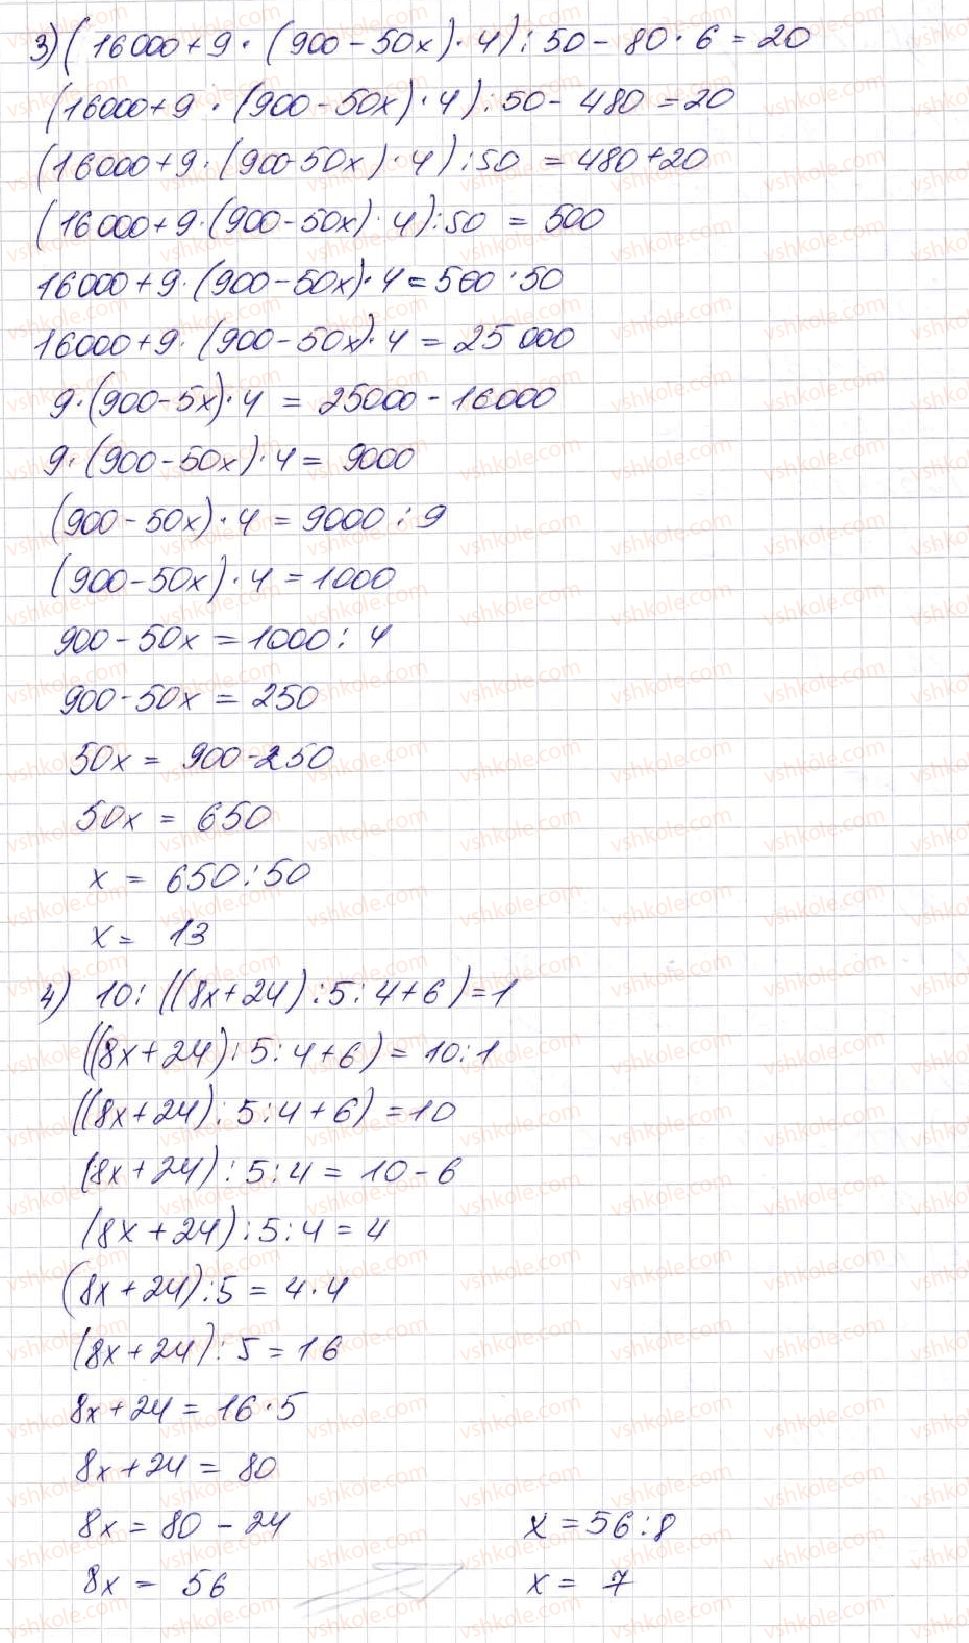 3) (16000+9·(900-50x)·4):50-80·6=20
(16000+9·(900-50x)·4):50-480=20
(16000+9·(900-50x)·4):50=480+20
(16000+9·(900-50x)·4):50=500
16000+9·(900-50x)·4=500·50
16000+9·(900-50x)·4=25000
9·(900-5x)·4=25000-16000
9·(900-50x)·4=9000
(900-50x)·4=9000:9
(900-50x)·4=1000
900-50x=1000:4
900-50x=250
50x=900-250
50x=650
x=650:50
x=13
4) 10:((8x+24):5:4+6)=1
((8x+24):5:4+6)=10:1
((8x+24):5:4+6)=10
(8x+24):5:4=10-6
(8x+24):5:4=4
(8x+24):5=4·4
(8x+24):5=16
8x+24=16·5
8x+24=80
8x=80-24
8x=56
x=56:8
x=7
vshkole.com